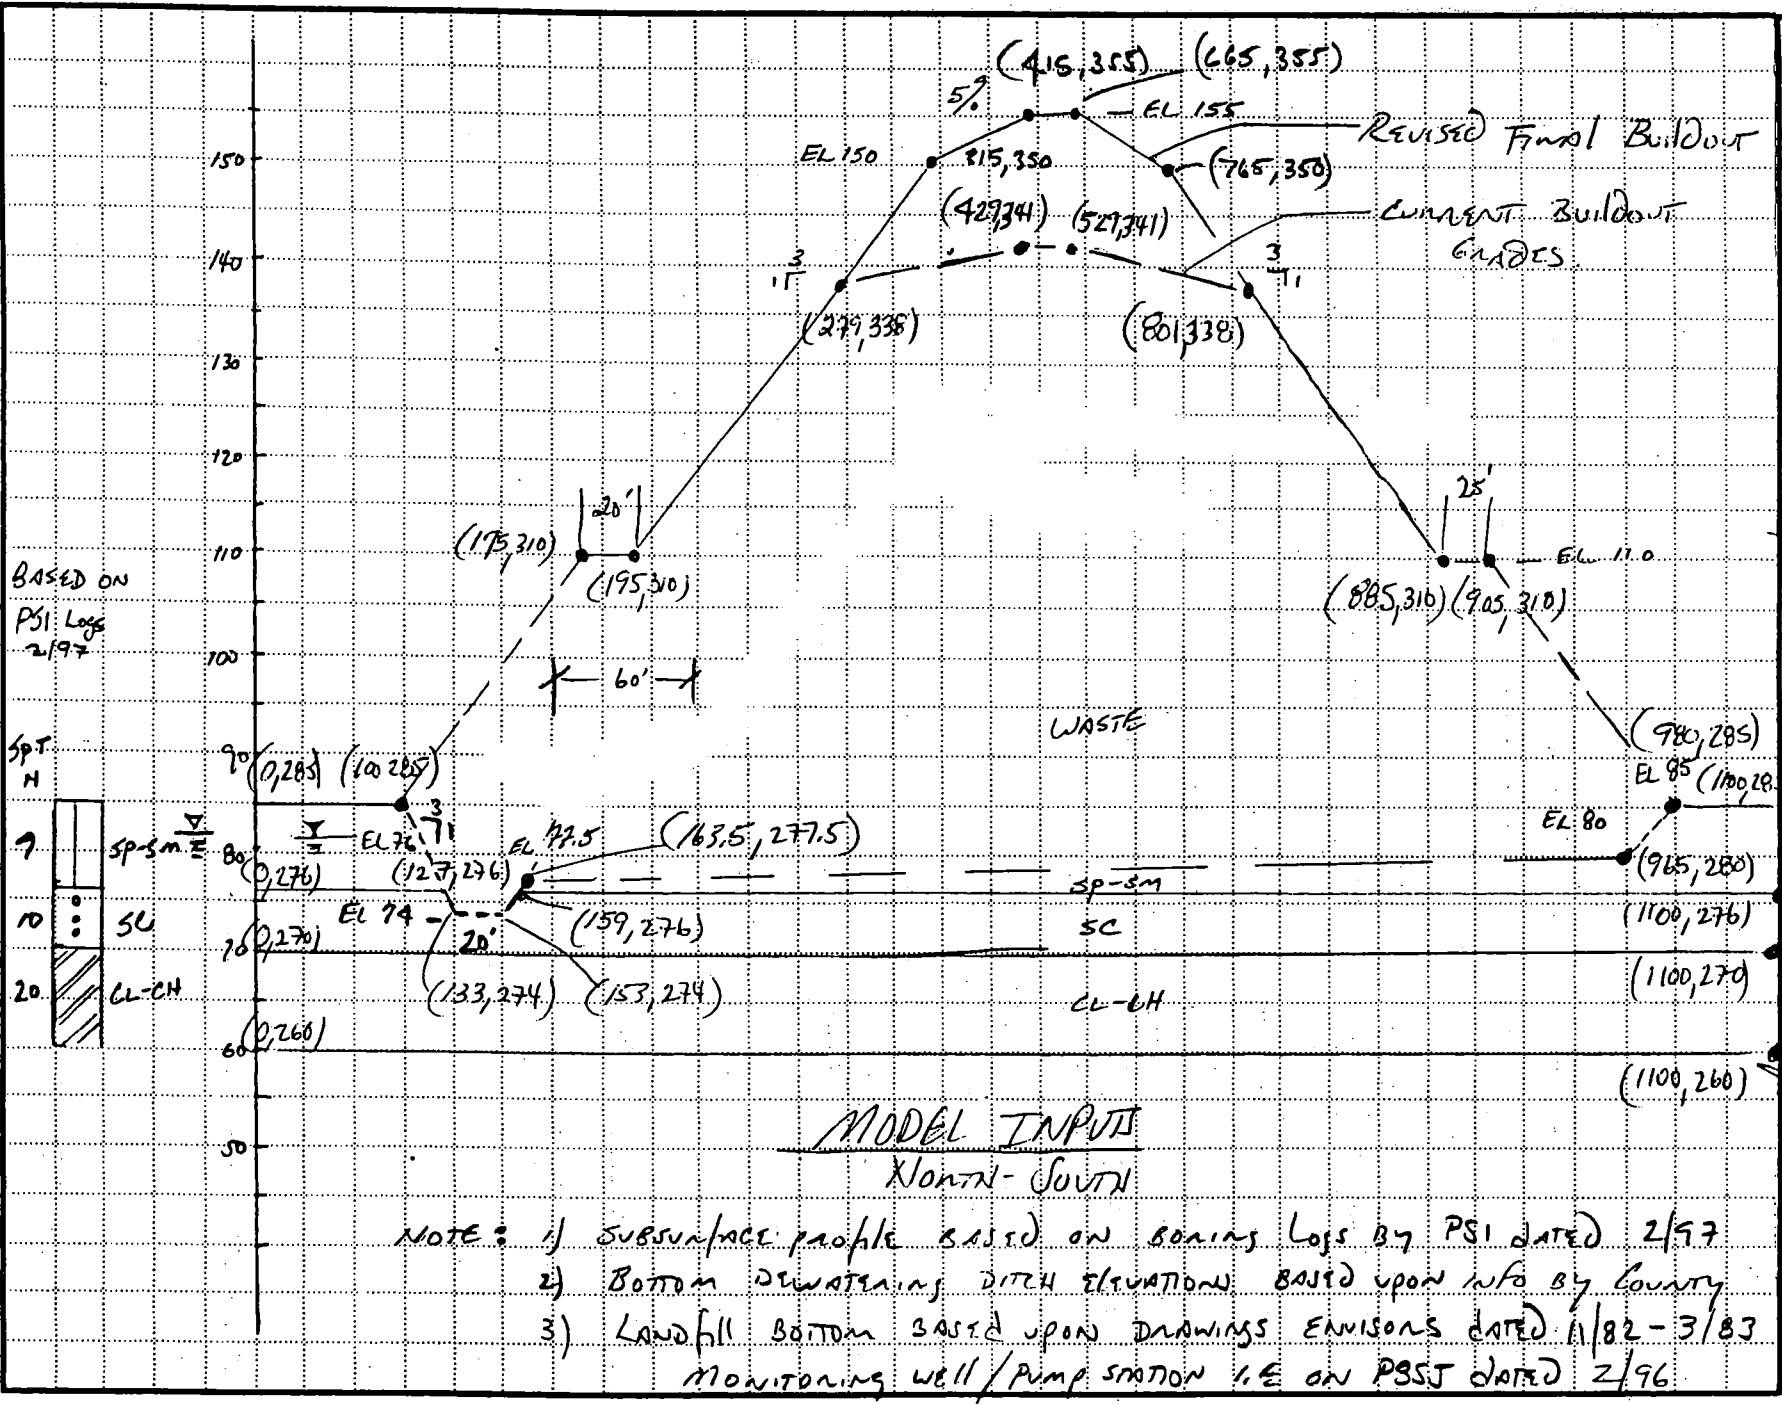 (415,355) (665,355)
5%
EL 155
REVISED FINAL BUILDOUT
150
EL 150
315,350
(765,350)
(429,341) (529,341)
CURRENT BUILDOUT
GRADES
140
3
1
3
1
(279,338)
(801,338)
130
120
20'
25'
110
(175,310)
EL 110
(195,310)
(885,310) (905,310)
BASED ON
PSI Logs
2/97
100
60'
WASTE
SPT
N
90
(0,285) (100 285)
(980,285)
EL 85
(1100,28
3
1
EL 77.5
(163.5,277.5)
EL 80
9
SP-SM
EL 76
80
(0,276)
(127,276)
(965,280)
SP-SM
10
SC
EL 74
(159,276)
SC
(1100,276)
70
(0,270)
20'
(1100,270)
20
CL-CH
(133,274) (153,274)
CL-CH
(0,260)
60
(1100,260)
MODEL INPUTS
50
NORTH-SOUTH
NOTE: 1) SUBSURFACE PROFILE BASED ON BORING LOGS BY PSI DATED 2/97
2) BOTTOM DEWATERING DITCH ELEVATIONS BASED UPON INFO BY COUNTY
3) LANDFILL BOTTOM BASED UPON DRAWINGS ENVISORS DATED 11/82-3/83
MONITORING WELL/PUMP STATION I.E ON PBSJ DATED 2/96